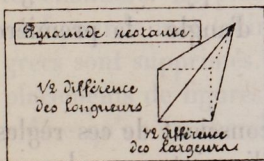 Pyramide restante.
1/2 différence
des longueurs
1/2 différence
des largeurs